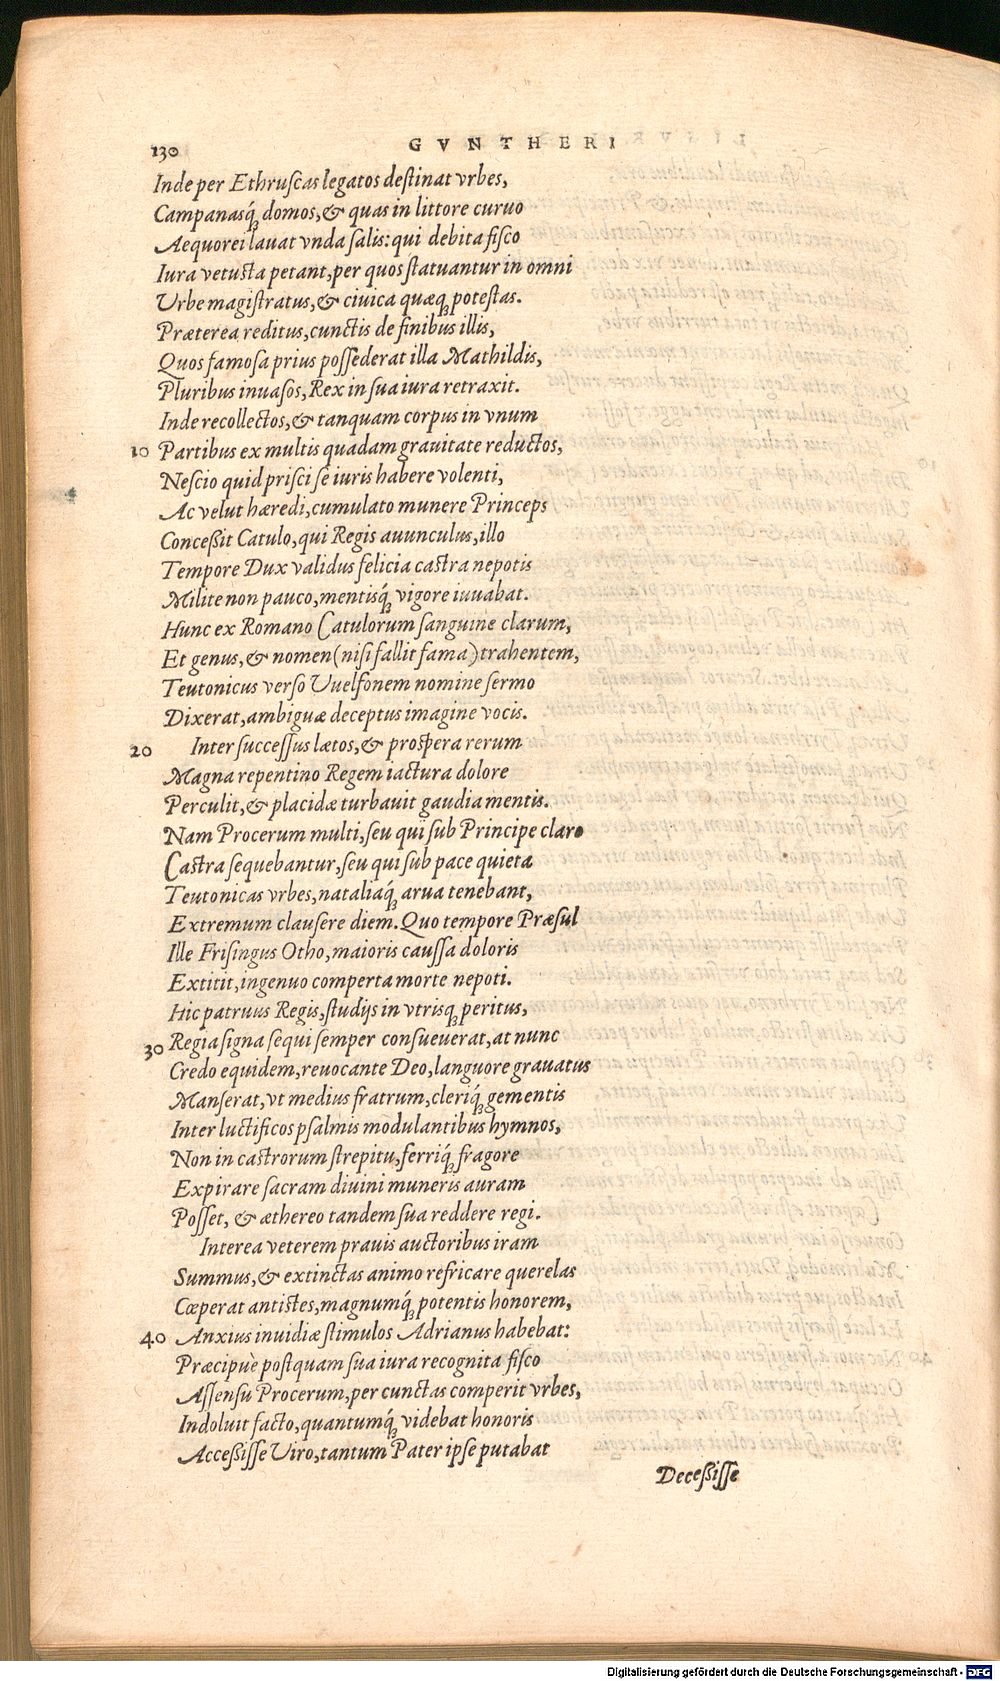 130 GVNTHERI
Inde per Ethruſcas legatos deſtinat vrbes,
Campanasq́; domos, & quas in littore curuo
Aequorei lauat vnda ſalis: qui debita fiſco
Iura vetuſta petant, per quos ſtatuantur in omni
Vrbe magiſtratus, & ciuica quæq; poteſtas.
Præterea reditus, cunctis de finibus illis,
Quos famoſa prius poſſederat illa Mathildis,
Pluribus inuaſos, Rex in ſua iura retraxit.
Inde recollectos, & tanquam corpus in vnum
10 Partibus ex multis quadam grauitate reductos,
Neſcio quid priſci ſe iuris habere volenti,
Ac velut hæredi, cumulato munere Princeps
Conceßit Catulo, qui Regis auunculus, illo
Tempore Dux validus felicia caſtra nepotis
Milite non pauco, mentisq́; vigore iuuabat.
Hunc ex Romano Catulorum ſanguine clarum,
Et genus, & nomen (niſi fallit fama) trahentem,
Teutonicus verſo Vuelfonem nomine ſermo
Dixerat, ambiguæ deceptus imagine vocis.
20 Inter ſucceſſus lætos, & proſpera rerum
Magna repentino Regem iactura dolore
Perculit, & placidæ turbauit gaudia mentis.
Nam Procerum multi, ſeu qui ſub Principe claro
Caſtra ſequebantur, ſeu qui ſub pace quieta
Teutonicas vrbes, nataliaq́; arua tenebant,
Extremum clauſere diem. Quo tempore Præſul
Ille Friſingus Otho, maioris cauſſa doloris
Extitit, ingenuo comperta morte nepoti.
Hic patruus Regis, ſtudijs in vtrisq; peritus,
30 Regia ſigna ſequi ſemper conſueuerat, at nunc
Credo equidem, reuocante Deo, languore grauatus
Manſerat, vt medius fratrum, cleriq́; gementis
Inter luctificos pſalmis modulantibus hymnos,
Non in caſtrorum ſtrepitu, ferriq́; fragore
Expirare ſacram diuini muneris auram
Poſſet, & æthereo tandem ſua reddere regi.
Interea veterem prauis auctoribus iram
Summus, & extinctas animo refricare querelas
Cœperat antiſtes, magnumq́; potentis honorem,
40 Anxius inuidiæ ſtimulos Adrianus habebat:
Præcipuè poſtquam ſua iura recognita fiſco
Aſſenſu Procerum, per cunctas comperit vrbes,
Indoluit facto, quantumq́; videbat honoris
Acceßiſſe Viro, tantum Pater ipſe putabat
Deceßiſſe
Digitalisierung gefördert durch die Deutsche Forschungsgemeinschaft - DFG